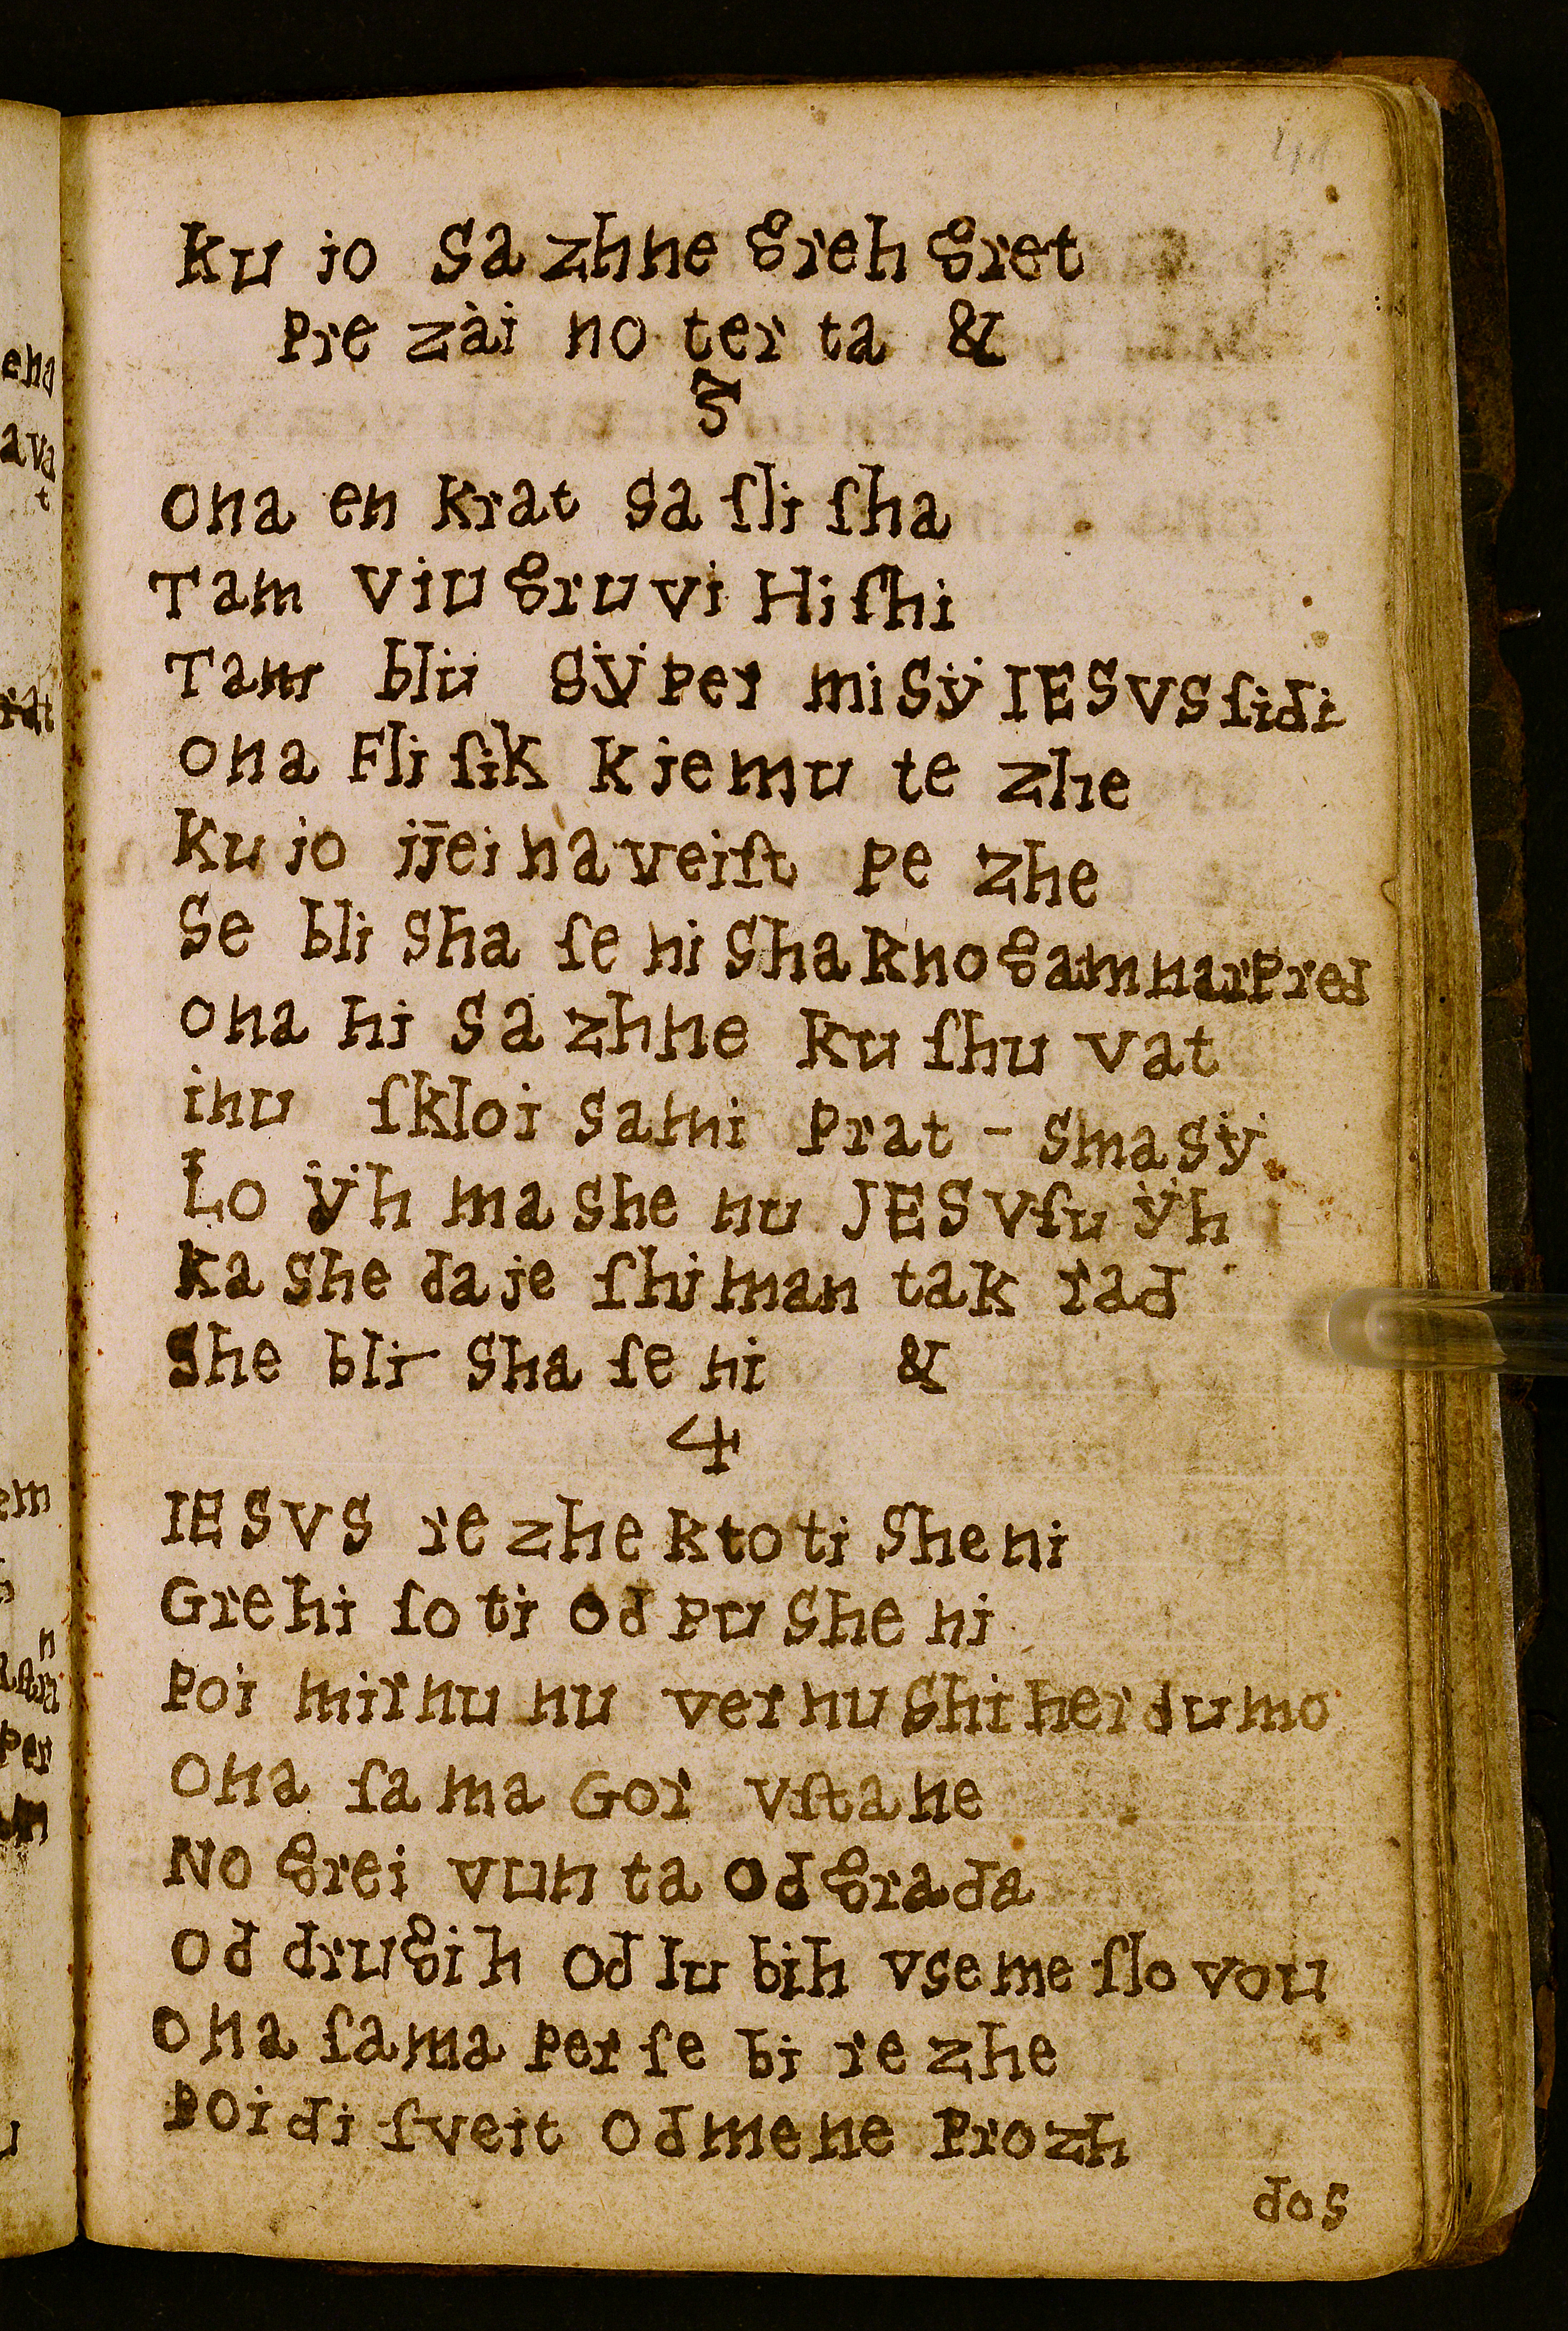 Ku jo Sa zhne greh gret
Pre zài no ter ta &
3
Ona en Krat Sa ſli ſha
Tam viu gru vi Hi ſhi
Tam blu Gÿ Per mi Sÿ IESVS ſidi
Ona Fli ſik K jemu te zhe
Ku jo jjei na veiſt Pe zhe
Se bli Sha ſe ni Sha K no gam nar Pred
Ona hi Sa zhne Ku ſhu vat
inu ſkloi Sami Prat - Sma Sÿ
Lo ÿh ma she nu JESVſu ÿh
Ka She da je ſhi man tak rad
She bli Sha ſe ni &
4
IESVS re zhe K to ti She ni
Gre hi ſo ti Od Pu She ni
Poi mir nu nu ver nu Shi her du mo
Ona ſa ma Gor vſta ne
No grei vun ta Od gra da
Od dru gih Od lu bih vse me ſlo vou
Ona ſa ma Per ſe bi re zhe
Poi di ſveit Od me ne Pro zh
dos